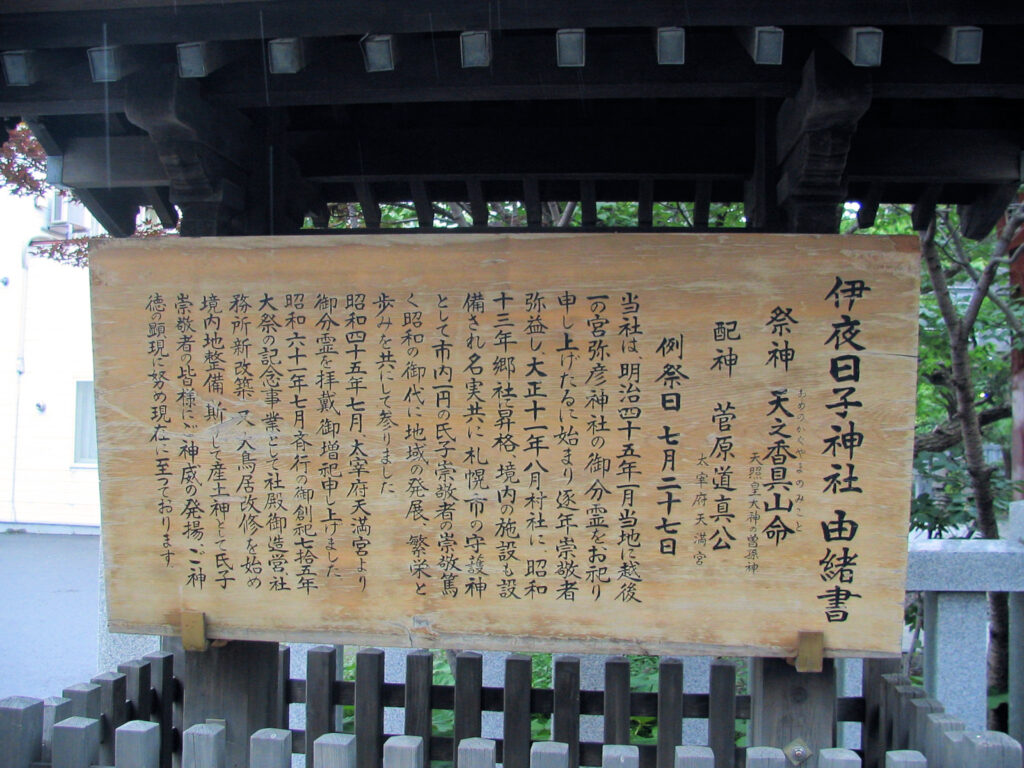 伊夜日子神社 由緒書
祭神 天之香具山命
あめのかぐやまのみこと
天照皇大神の曽孫神
配神 菅原道真公
太宰府天満宮
例祭日 七月二十七日
当社は、明治四十五年一月当地に越後
一の宮弥彦神社の御分霊をお祀り
申し上げたるに始まり逐年崇敬者
弥益し、大正十一年八月村社に、昭和
十三年郷社に昇格、境内の施設も設
備され名実共に札幌市の守護神
として市内一円の氏子崇敬者の崇敬篤
く昭和の御代に地域の発展、繁栄と
歩みを共にして参りました
昭和四十五年七月、太宰府天満宮より
御分霊を拝戴御増祀申し上げました
昭和六十一年七月斉行の御創祀七拾五年
大祭の記念事業として社殿御造営社
務所新改築、又、大鳥居改修を始め
境内地整備、斯くして産土神として氏子
崇敬者の皆様にご神威の発揚、ご神
徳の顕現に努め現在に至っております